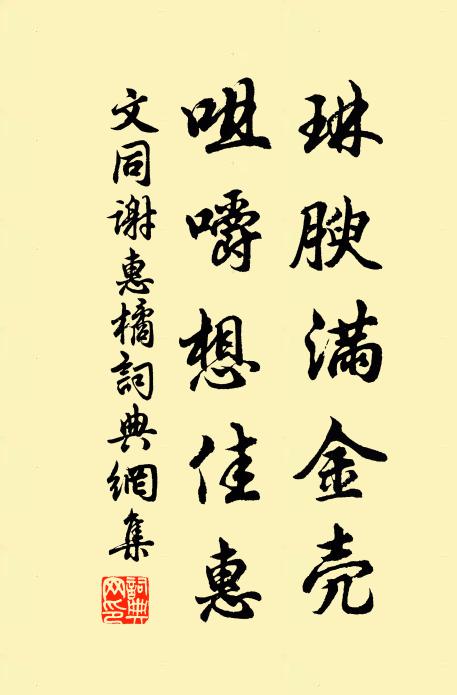 琳腴满金壳
咀嚼想佳惠
文同谢惠橘詞典網集
詞典網印